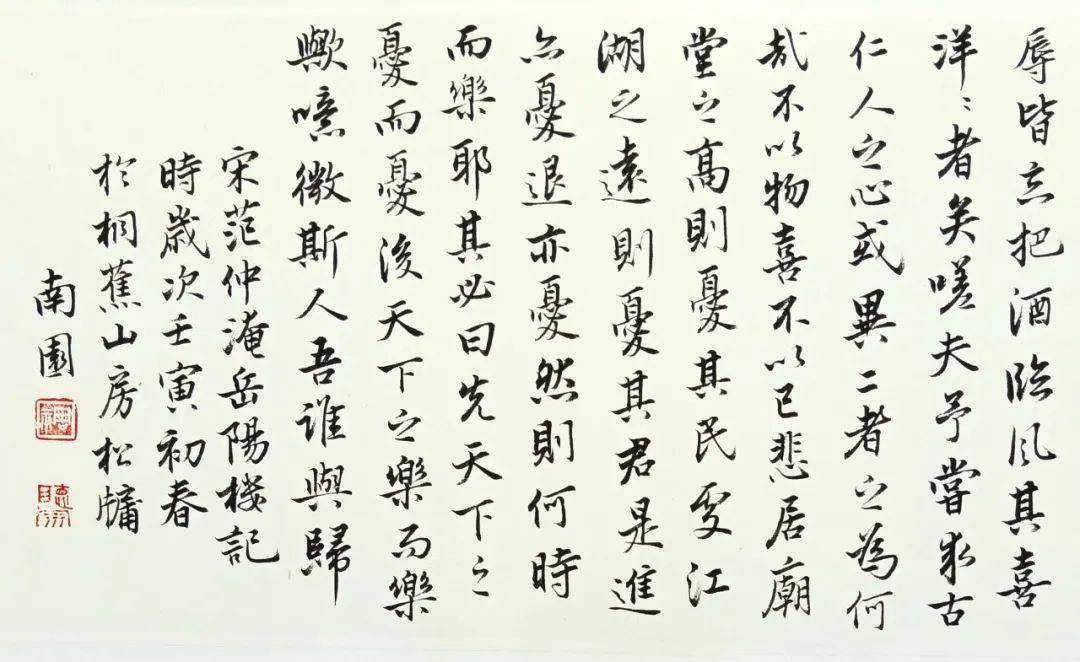 辱皆忘把酒临风其喜
洋〻者矣嗟夫予嘗求古
仁人之心或異二者之為何
哉不以物喜不以己悲居廟
堂之高則憂其民處江
湖之遠則憂其君是進
亦憂退亦憂然則何時
而樂耶其必曰先天下之
憂而憂後天下之樂而樂
歟噫微斯人吾誰與歸
宋范仲淹岳陽樓記
時歲次壬寅初春
於桐蕉山房松牖
南園